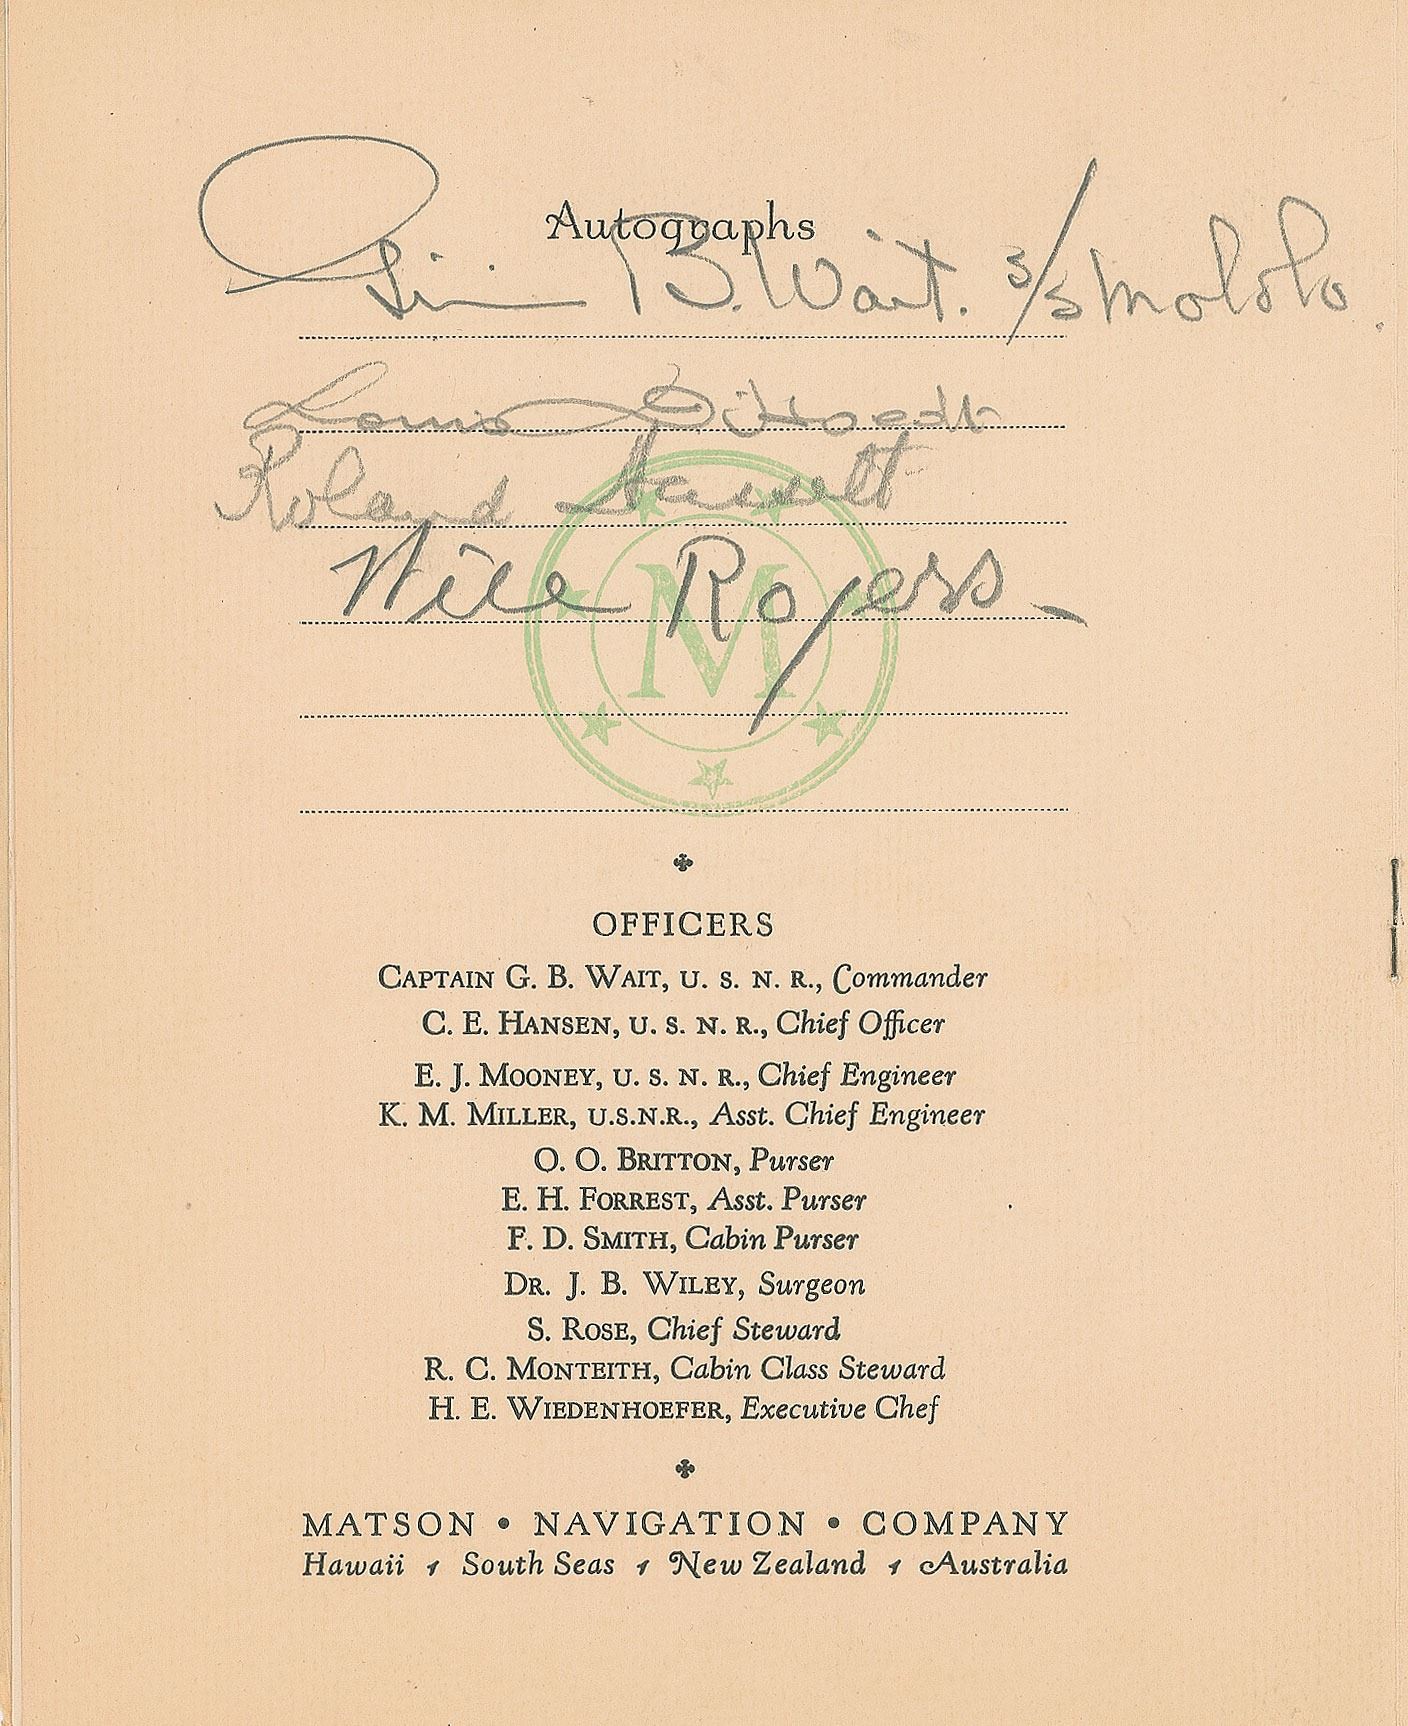 Autographs
B. Wait. S/S Malolo.
Roland
Will Rogers
M
OFFICERS
CAPTAIN G. B. WAIT, U. S. N. R., Commander
C. E. HANSEN, U. S. N. R., Chief Officer
E. J. MOONEY, U. S. N. R., Chief Engineer
K. M. MILLER, U.S.N.R., Asst. Chief Engineer
O. O. BRITTON, Purser
E. H. FORREST, Asst. Purser
F. D. SMITH, Cabin Purser
DR. J. B. WILEY, Surgeon
S. ROSE, Chief Steward
R. C. MONTEITH, Cabin Class Steward
H. E. WIEDENHOEFER, Executive Chef
MATSON • NAVIGATION • COMPANY
Hawaii South Seas New Zealand Australia